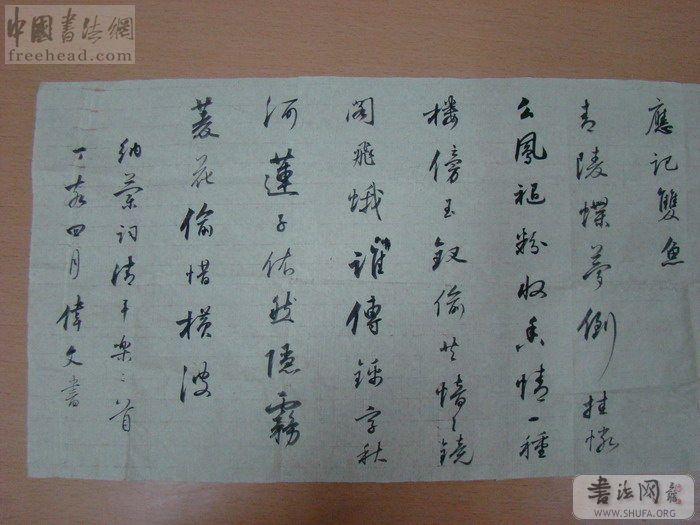 中國書法網
freehead.com
應記雙魚
青陵蝶夢倒挂憐
么鳳褪粉收香情一種
棲傍玉釵偷共愔〻鏡
閣飛蛾誰傳錦字秋
河蓮子依然隱霧
菱花偷惜橫波
納蘭詞清平楽二首
丁亥四月偉文書
書法网
WWW.SHUFA.ORG